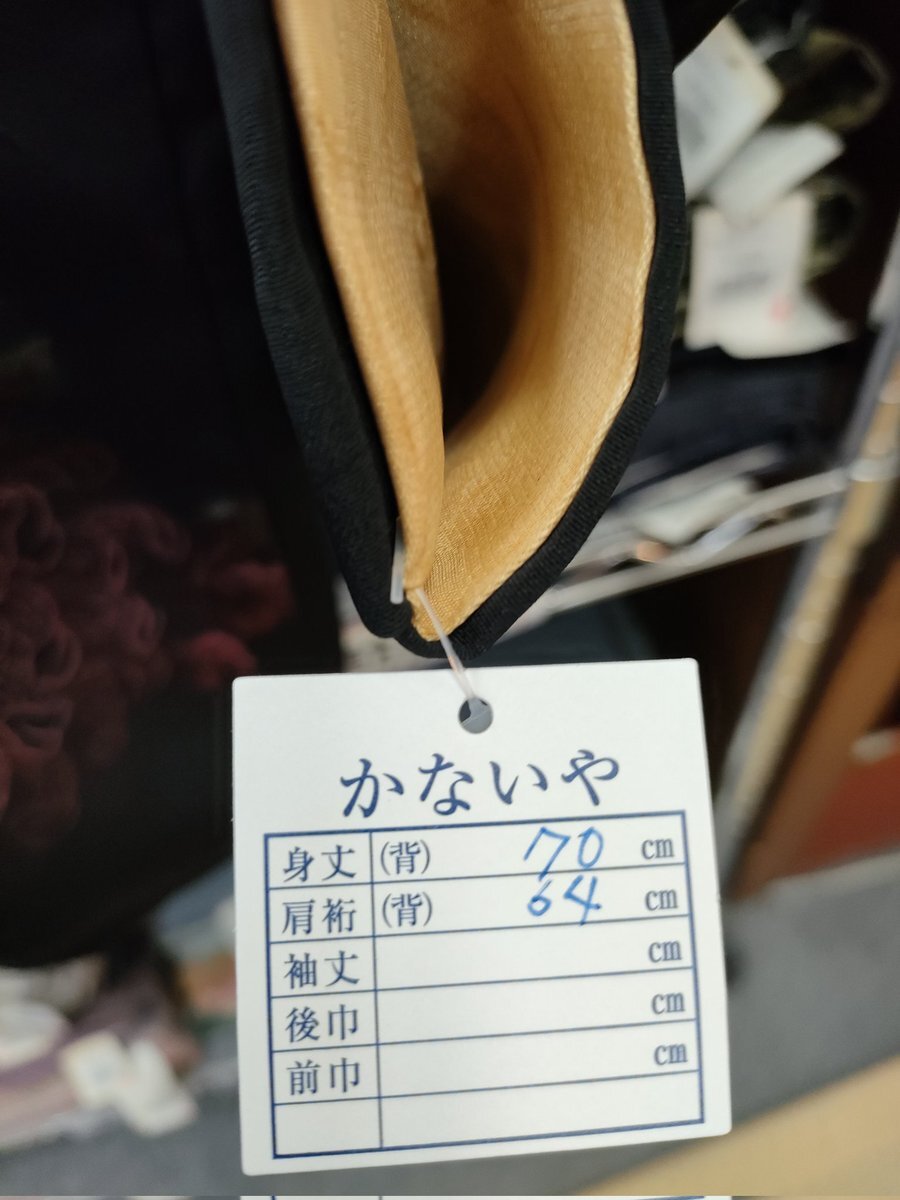 かないや
身丈 (背) 70 cm
肩裄 (背) 64 cm
袖丈 cm
後巾 cm
前巾 cm